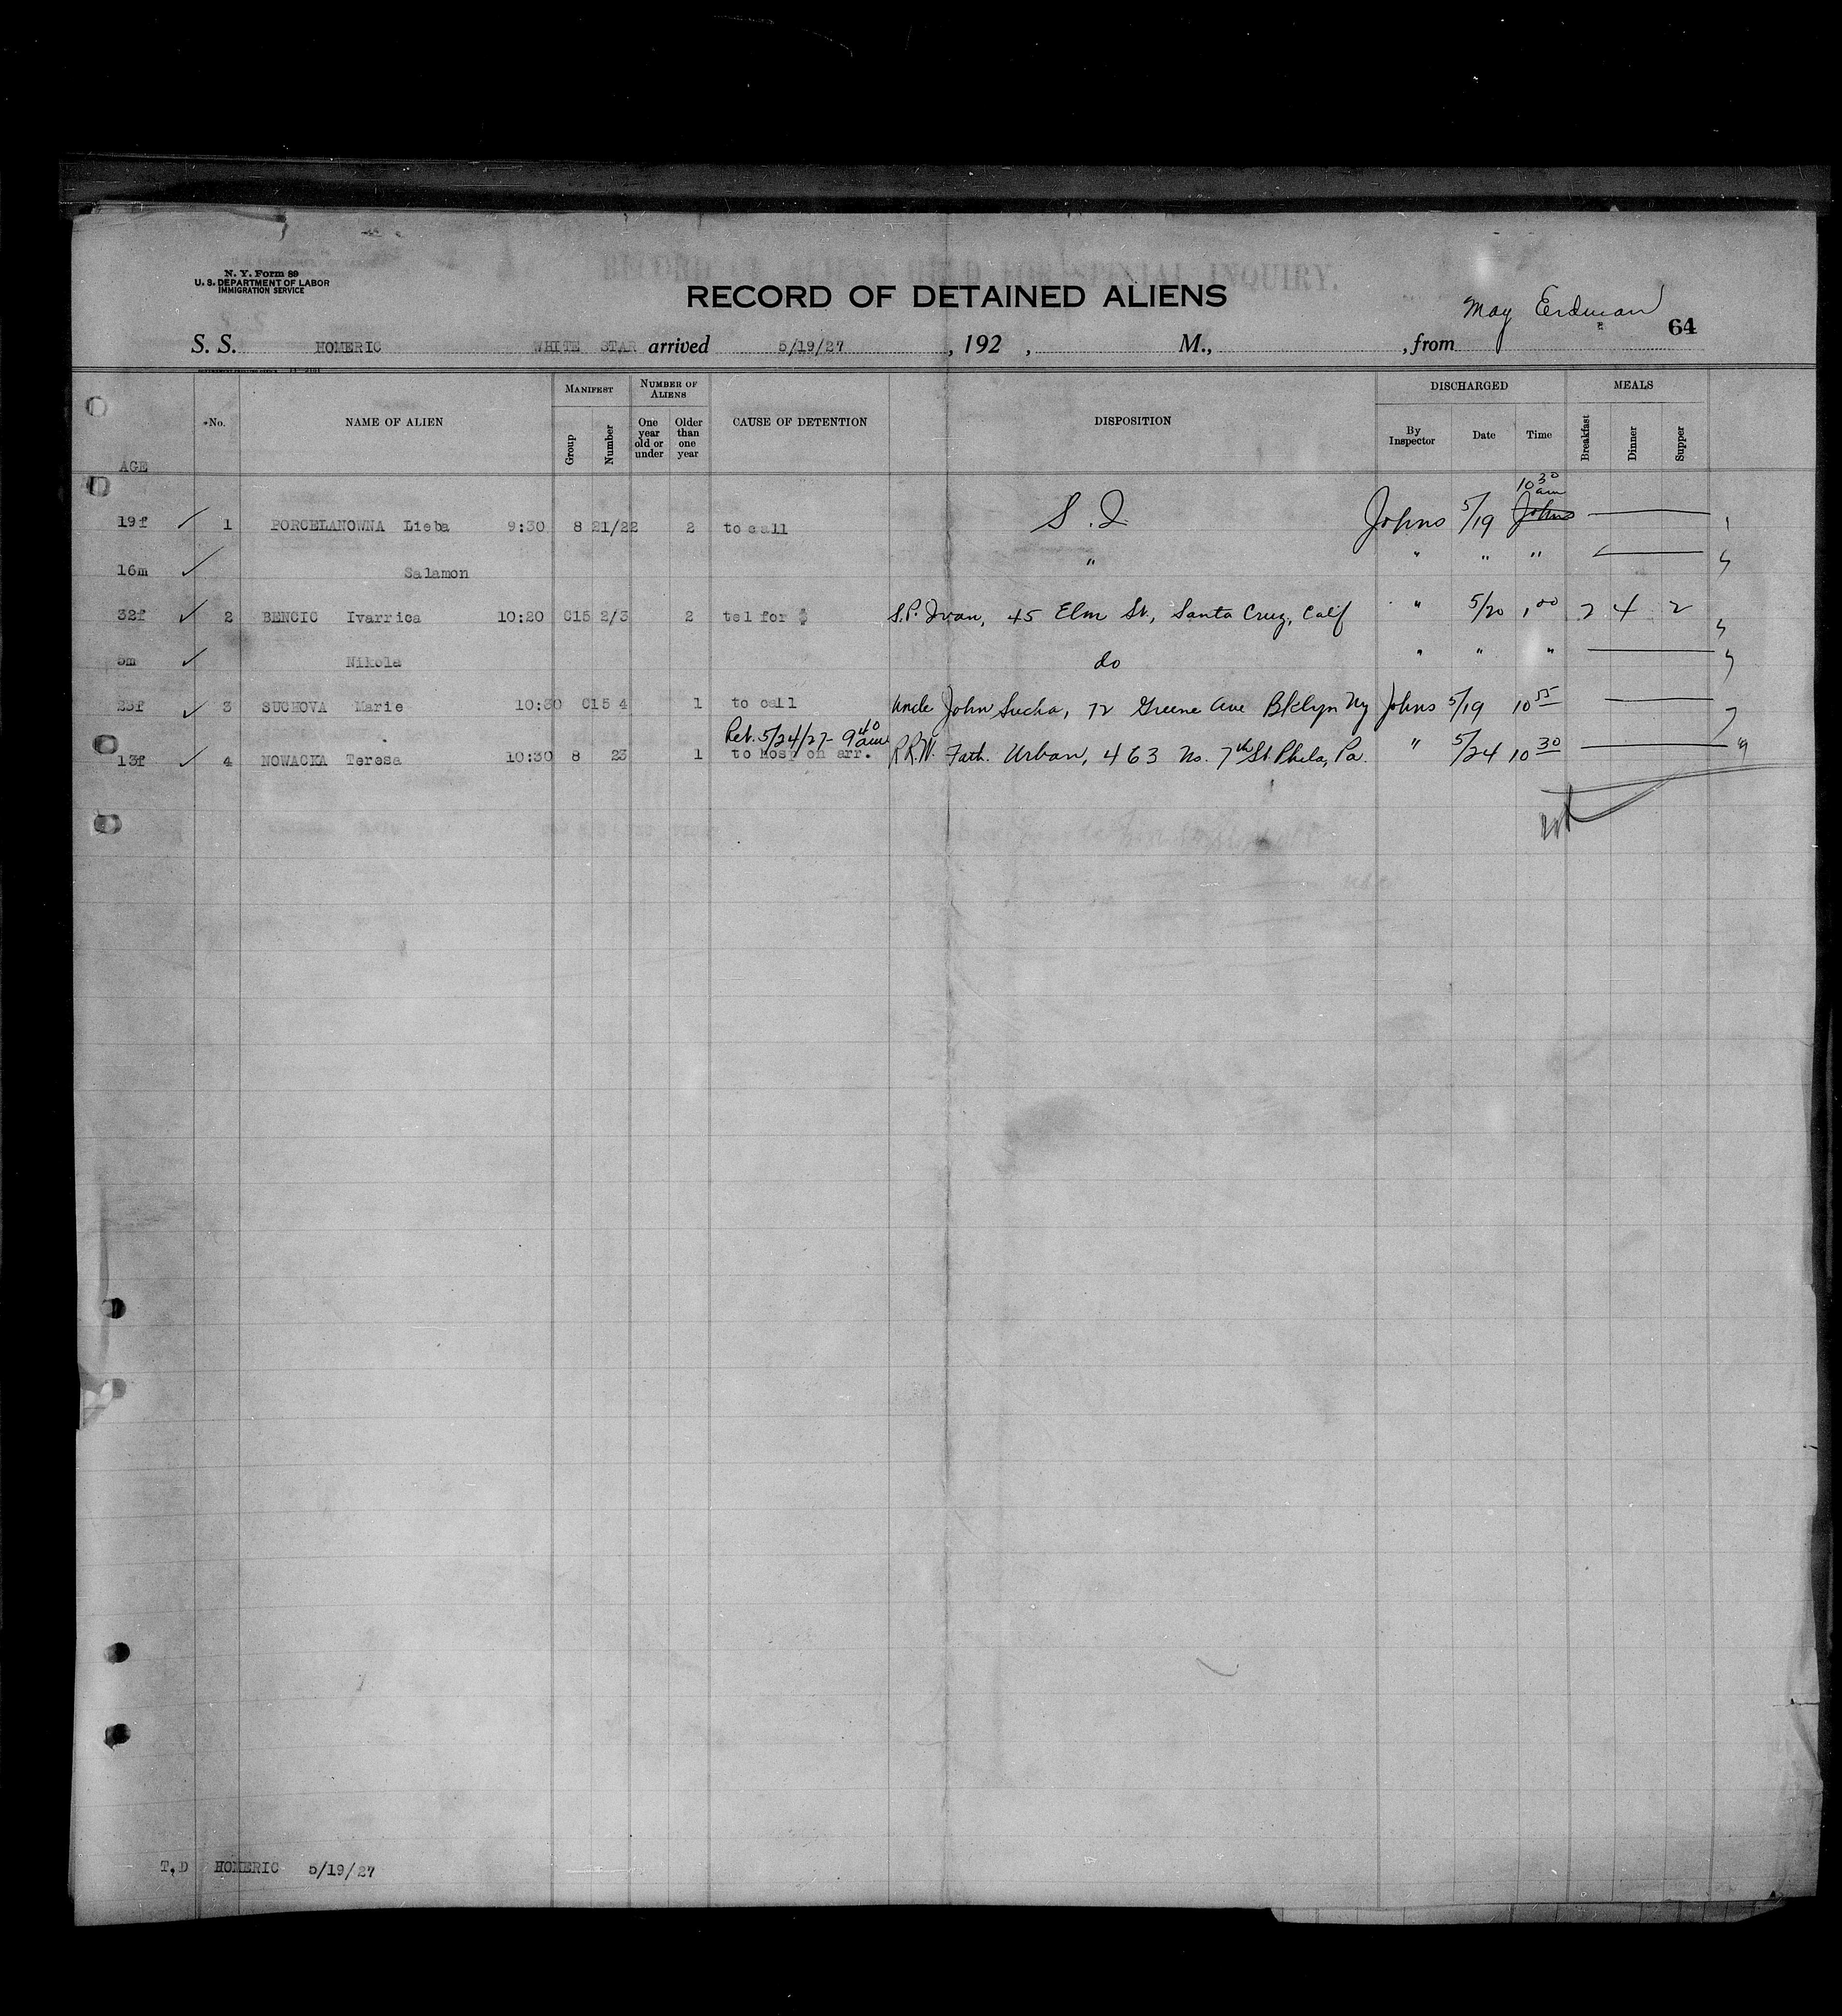 N. Y. Form 89
U. S. DEPARTMENT OF LABOR
IMMIGRATION SERVICE
RECORD OF ALIENS HELD FOR SPECIAL INQUIRY.
RECORD OF DETAINED ALIENS
May Erdman
64
S. S. HOMERIC WHITE STAR arrived 5/19/27, 192 , M., , from
AGE No. NAME OF ALIEN MANIFEST Group Number NUMBER OF ALIENS One year old or under Older than one year CAUSE OF DETENTION DISPOSITION DISCHARGED By Inspector Date Time MEALS Breakfast Dinner Supper
10 30 am
19f 1 PORCELANOWNA Lieba 9:30 8 21/22 2 to call S. I. Johns 5/19 Johns
16m Salamon " " " "
32f 2 BENCIC Ivarrica 10:20 C15 2/3 2 tel for $ S.P. Ivan, 45 Elm St., Santa Cruz, Calif " 5/20 1 00 2 4 2
5m Nikola do " " "
23f 3 SUCHOVA Marie 10:30 C15 4 1 to call Uncle John Sucha, 72 Greene Ave Bklyn Ny Johns 5/19 10 55
Ret. 5/24/27 - 9 40 am
13f 4 NOWACKA Teresa 10:30 8 23 1 to hosp on arr. R.R.W. Fath. Urban, 463 No. 7th St. Phila, Pa. " 5/24 10 30
T,D HOMERIC 5/19/27